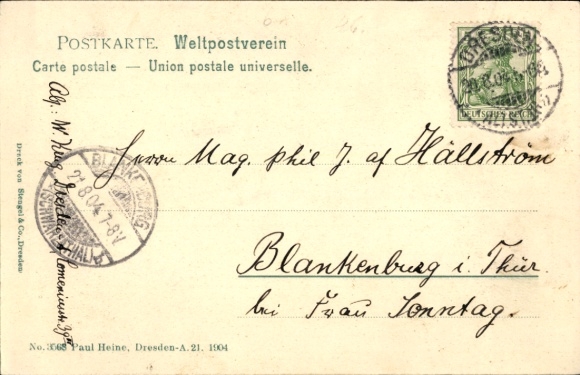 POSTKARTE. Weltpostverein
Carte postale — Union postale universelle.
DEUTSCHES REICH
DRESDEN
20.8.04
BLANKENBURG
21.8.04. 7-8V
(SCHWARZATHAL)
Herrn Mag. phil J. af Hällström
Blankenburg i. Thür.
bei Frau Sonntag.
Abg.: W. Krug, Dresden
Druck von Stengel & Co., Dresden
No. 3563 Paul Heine, Dresden-A. 21. 1904